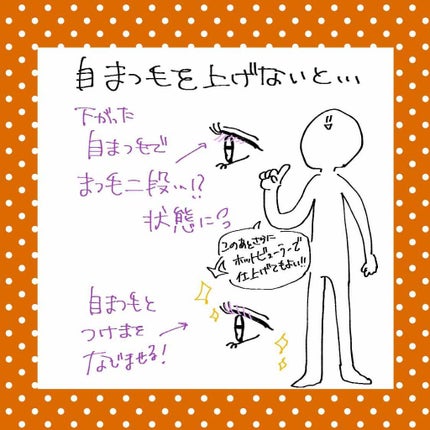 自まつ毛を上げないと...
下がった
自まつ毛で
まつ毛二段...!?
状態にっ
このあとさらに
ホットビューラーで
仕上げてもよい!!
自まつ毛と
つけまを
なじませる!